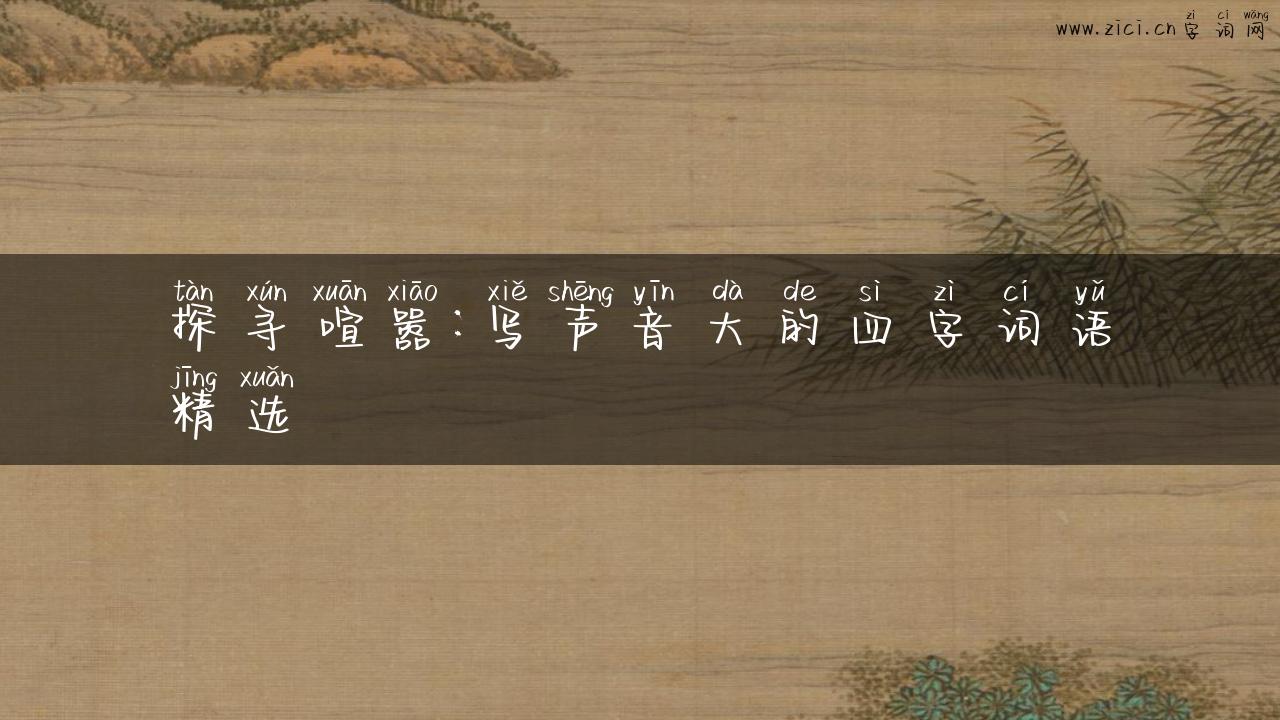 zì cí wǎng
www.zici.cn 字 词 网
tàn xún xuān xiāo xiě shēng yīn dà de sì zì cí yǔ
探 寻 喧 嚣 : 写 声 音 大 的 四 字 词 语
jīng xuǎn
精 选